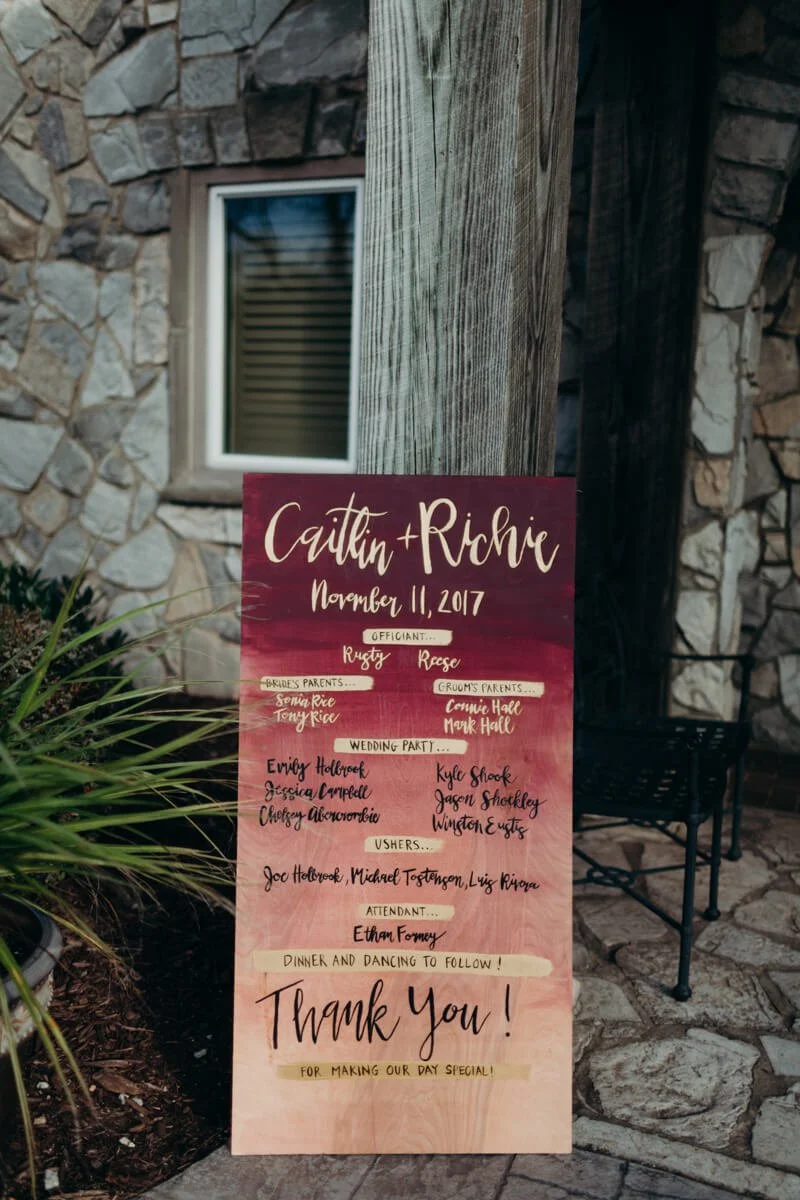 Caitlin + Richie
November 11, 2017
OFFICIANT...
Rusty Reese
BRIDE'S PARENTS... GROOM'S PARENTS...
Sonia Rice Connie Hall
Tony Rice Mark Hall
WEDDING PARTY...
Emily Holbrook Kyle Shook
Jessica Campbell Jason Shockley
Chelsey Abercrombie Winston Eustis
USHERS...
Joe Holbrook, Michael Tostenson, Luis Rivera
ATTENDANT...
Ethan Forney
DINNER AND DANCING TO FOLLOW!
Thank You!
FOR MAKING OUR DAY SPECIAL!